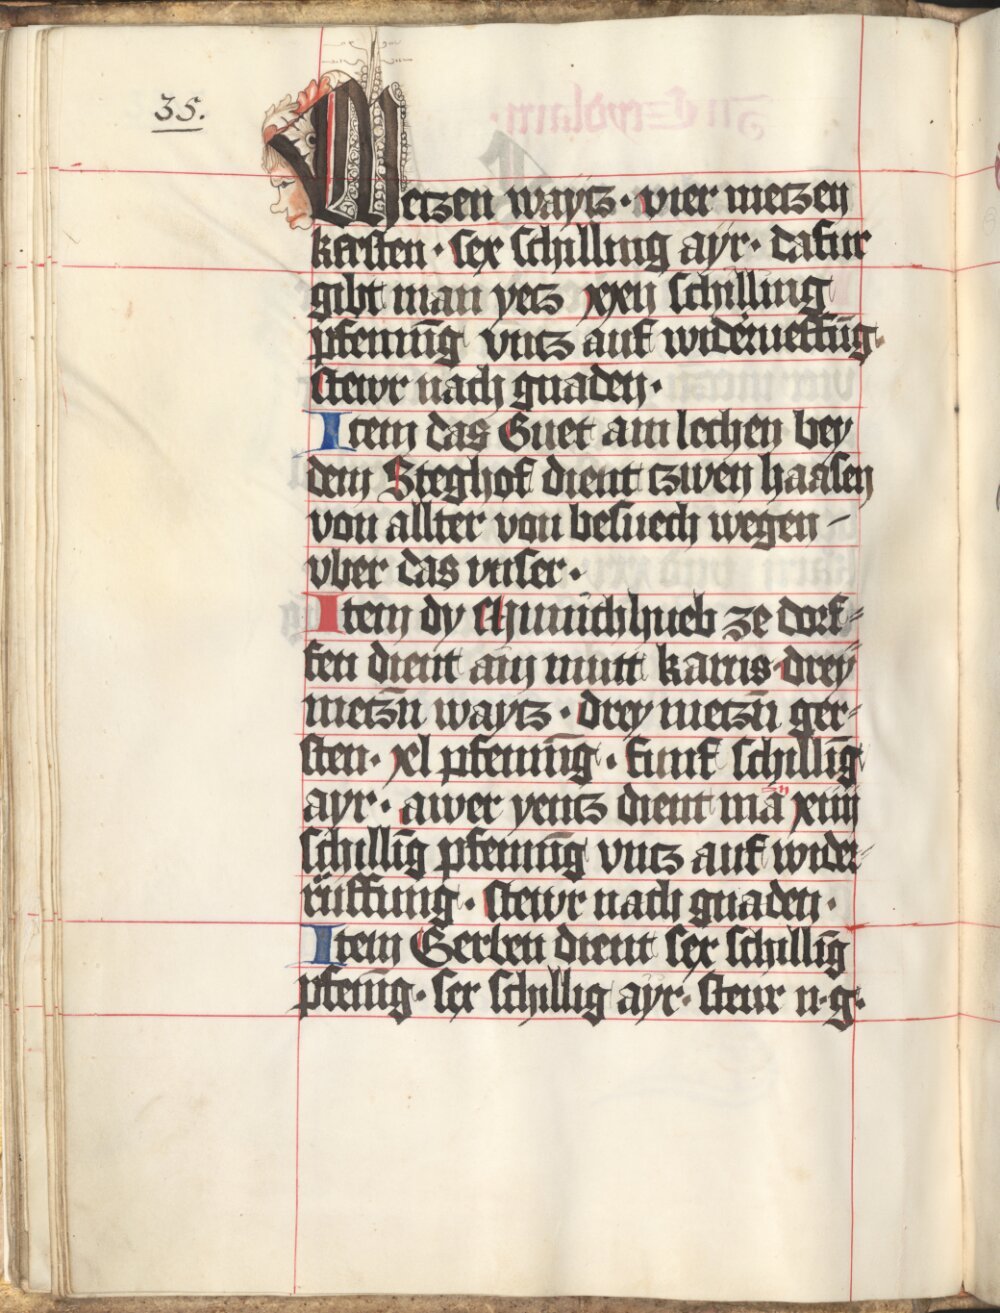 35.
Metzen waytz · vier metzen
kersten · sex schilling ayr · dafur
gibt man yetz xxii schilling
pfenning vntz auf widerueffūg ·
stewr nach gnaden ·
Item das Guet am lechen bey
dem Steghof dient tzwen haasen
von allter von besuech wegen –
vber das vnser ·
Item dy Munichhueb ze dorf-
fen dient ain mutt karns drey
metzn̄ waytz · drey metzn̄ ger-
sten · xl pfenning · funf schillīg
ayr · awer yentz dient mā xiiii
schillīg pfenning vntz auf wider-
rüffung · stewr nach gnaden ·
Item Gerlen dient sex schillīg
pfenīg · sex schillig ayr · steur n · g ·